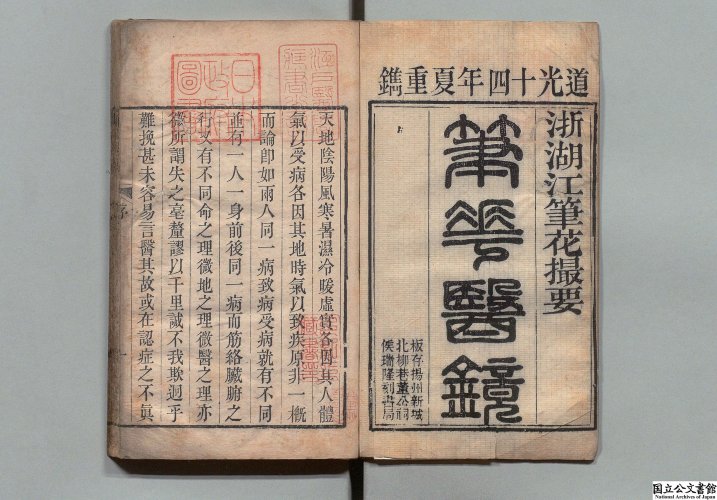 道光十四年夏重鐫
浙湖江筆花撮要
筆花醫鏡
板存揚州新城
北柳巷董公祠
侯瑞隆刻書局
天地陰陽風寒暑濕冷暖虛實各因其人體
氣以受病各因其地時氣以致疾原非一概
而論即如兩人同一病致病受病就有不同
並有一人一身前後同一病而筋絡臟腑之
行又有不同命之理微地之理微醫之理亦
微所謂失之毫釐謬以千里誠不我欺迴乎
難挽甚未容易言醫其故或在認症之不眞
序
一
日本
政府
圖書
国立公文書館
National Archives of Japan